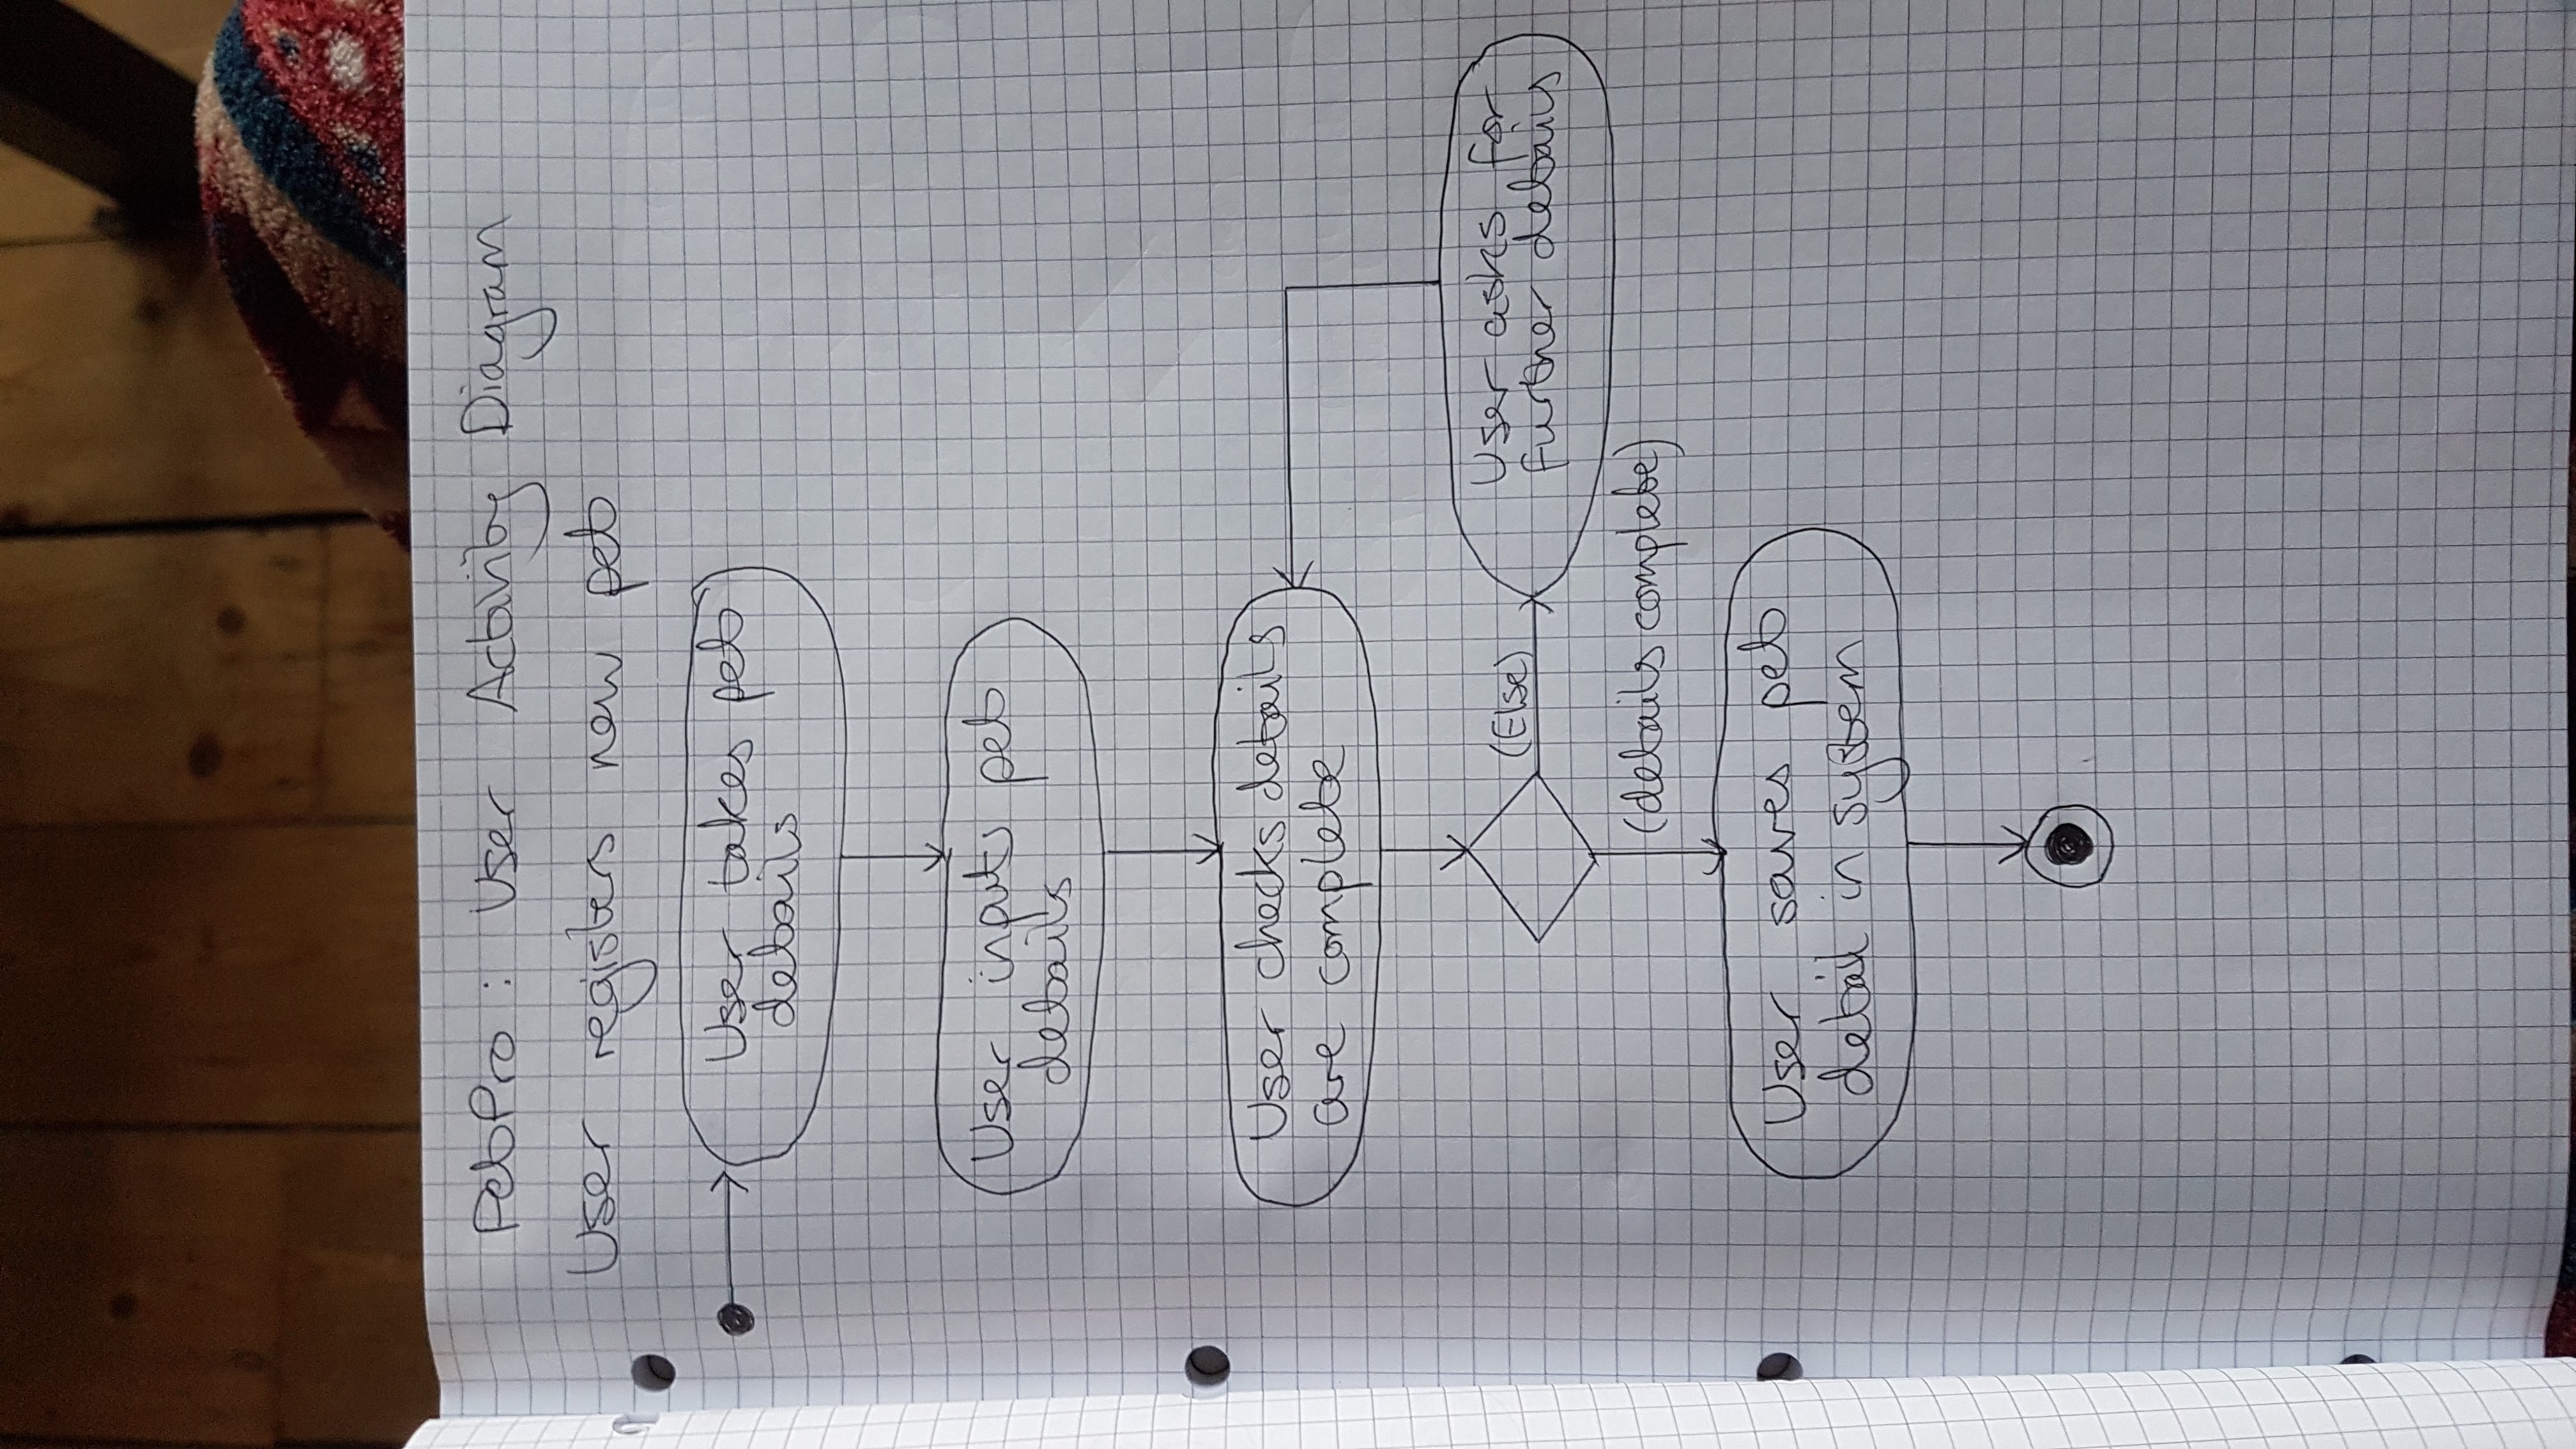 PetPro : User Activity Diagram
User registers new pet
User takes pet
details
User inputs pet
details
User checks details
are complete
(Else)
User asks for
further details
(details complete)
User saves pet
detail in system